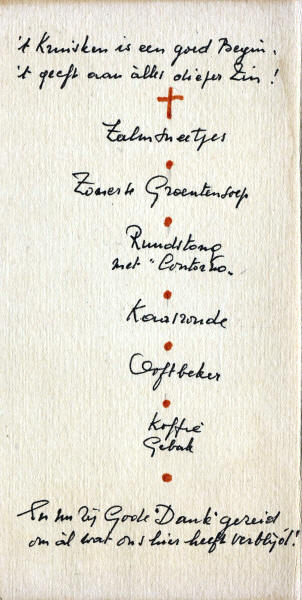 't Kruisken is een goed Begin.
't geeft aan àlles dieper Zin!
Zalmsneetjes
Zomerse Groentensoep
Rundstong
met "Contorno"
Kaasronde
Ooftbeker
Koffie
Gebak
En nu zij Gode "Dank" gezeid
om àl wat ons hier heeft verblijd!